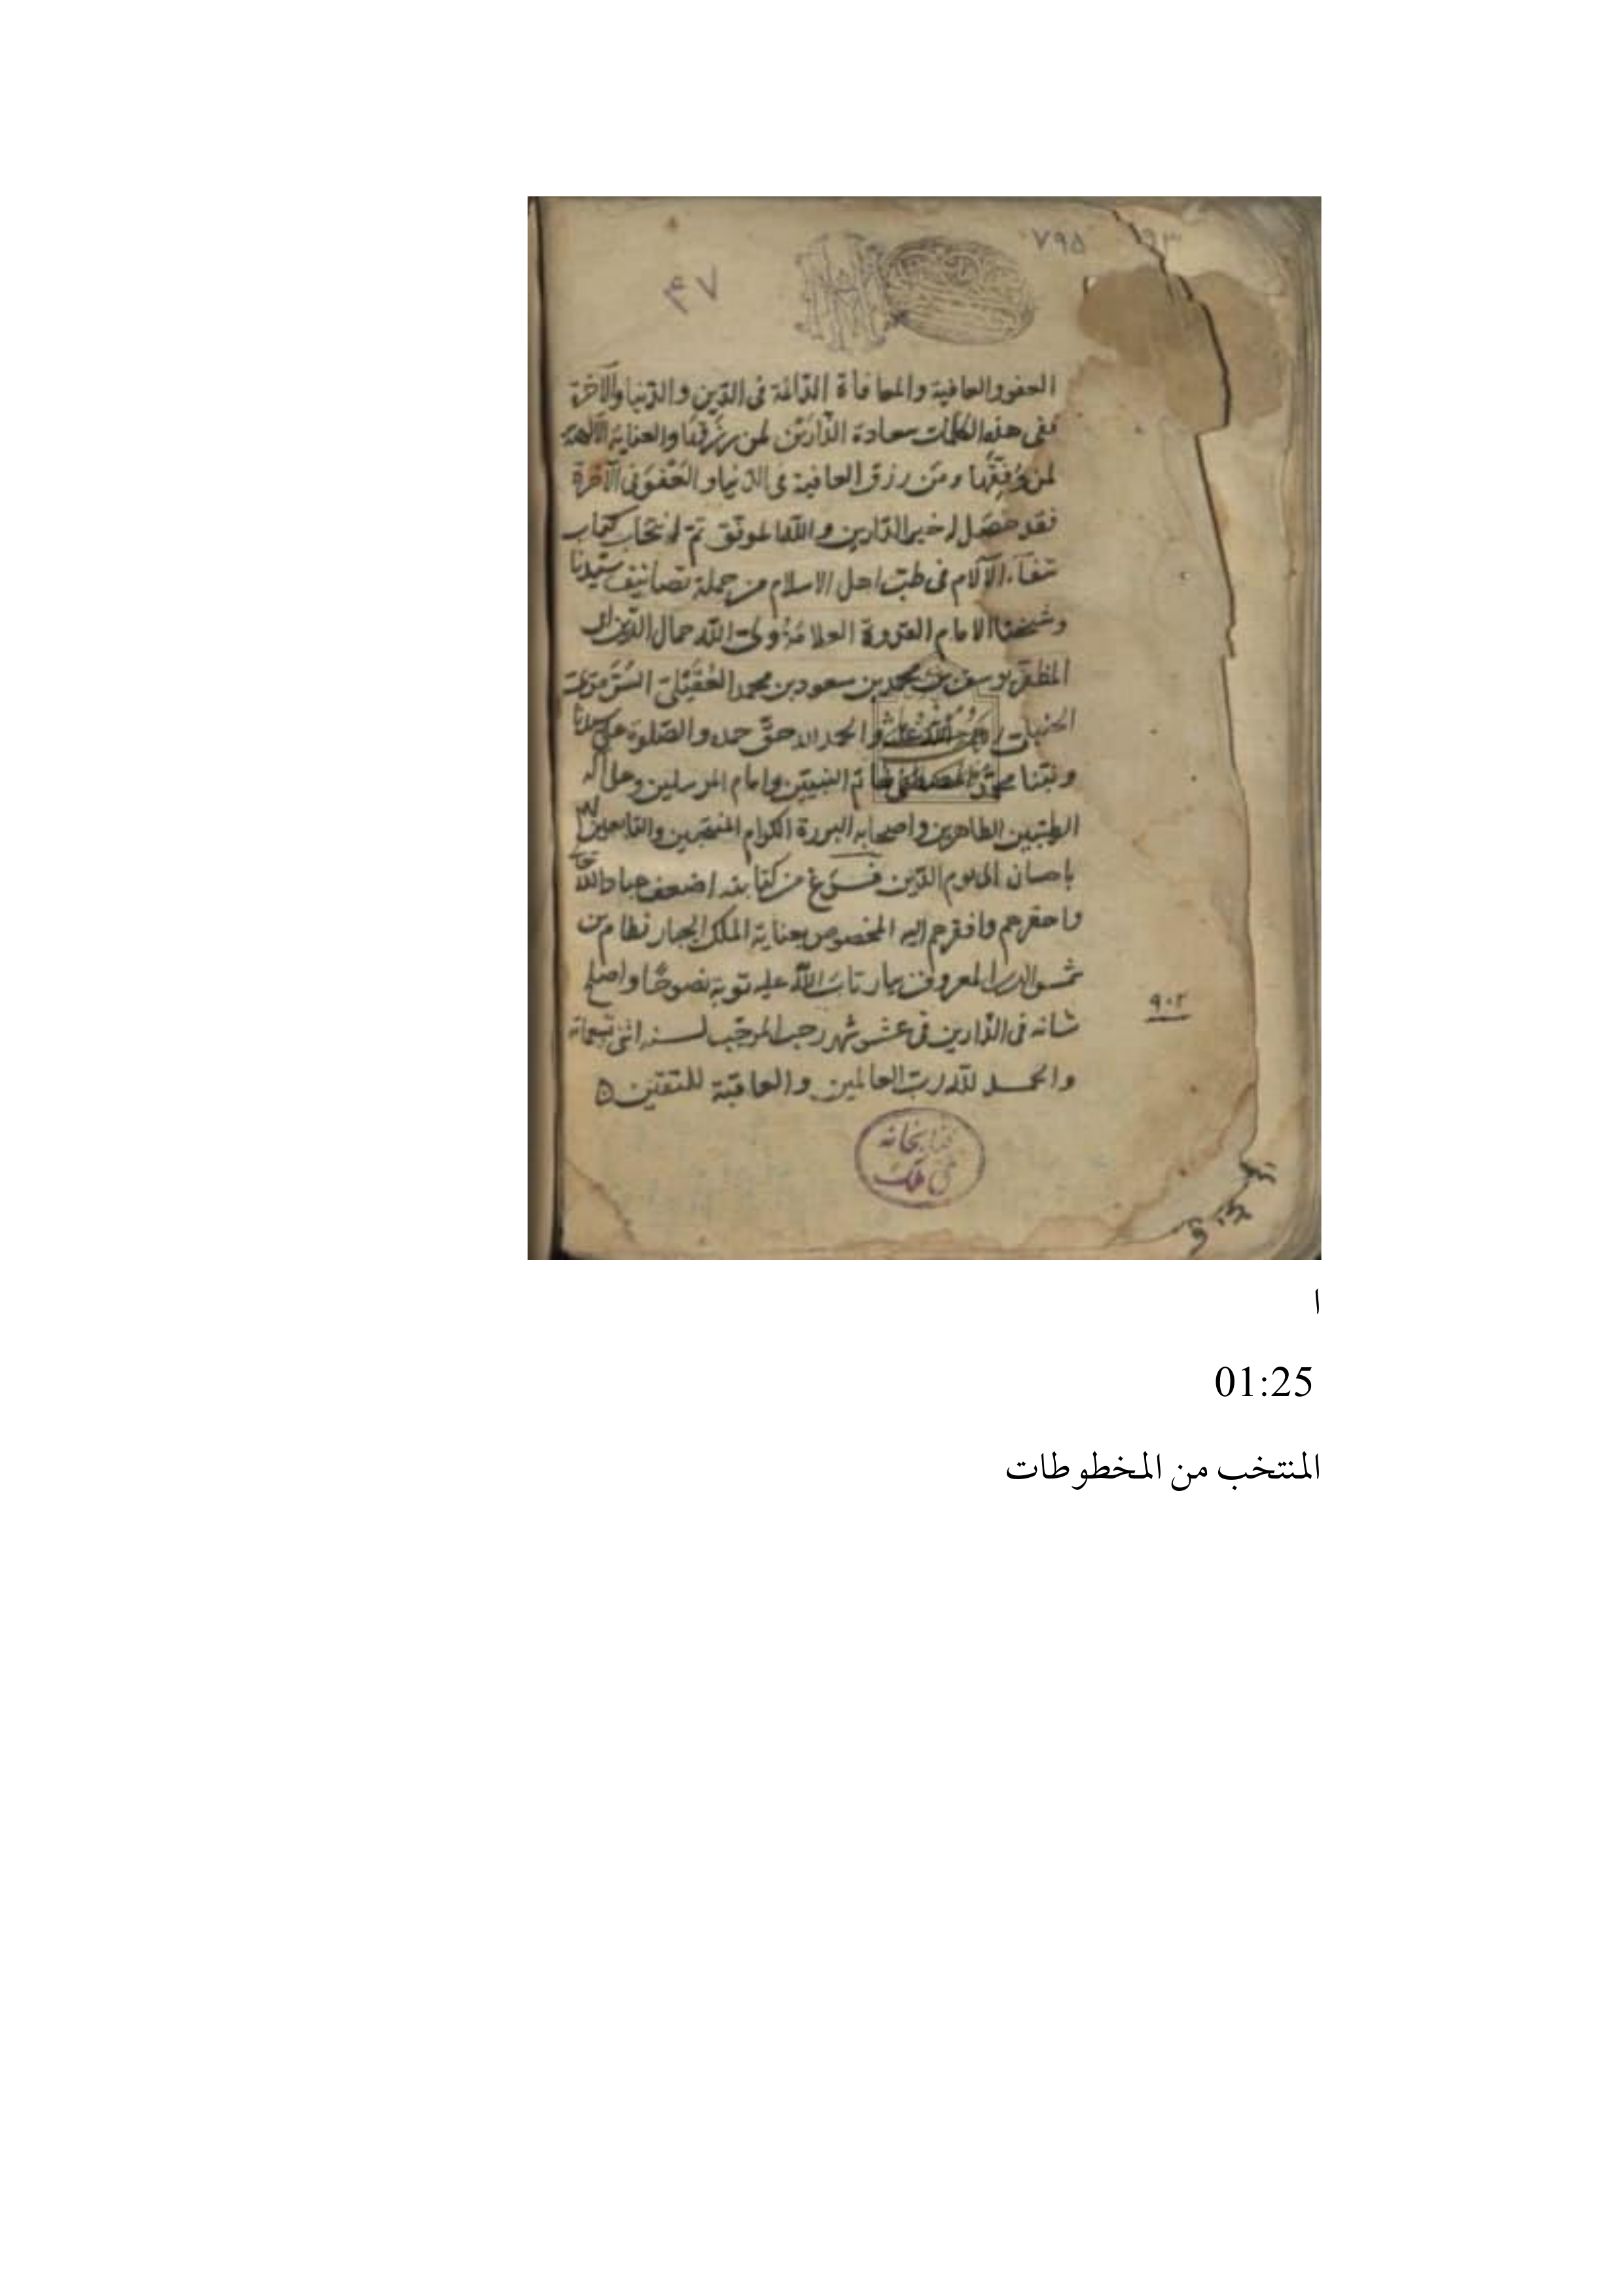 ٧٩۵ ٩٣
۴٧
العفو والعافية والمعافاة الدائمة فى الدين والدنيا والآخرة
ففى هذه الكلمات سعادة الدارين لمن رزقها والعناية الالهية
لمن وُفِقَها ومن رزق العافية فى الدنيا والعفو فى الآخرة
فقد حصل خير الدارين والله الموفق تم انتخاب كتاب
شفاء الآلام فى طب اهل الاسلام من جملة تصانيف سيدنا
وشيخنا الامام القدوة العلامة ولى الله جمال الدين ابى
المظفر يوسف بن محمد بن مسعود بن محمد العُقَيْلى السُرّمرّى
رحمة الله عليه والحمد لله حق حمده والصلوة على سيدنا
ونبينا محمد المصطفى خاتم النبيين وامام المرسلين وعلى آله
الطيبين الطاهرين واصحابه البررة الكرام المنتجبين والتابعين لهم
باحسان الى يوم الدين فرغ من كتابته اضعف عباد الله
واحقرهم وافقرهم اليه المخصوص بعناية الملك الجبار نظام بن
شمس الدين المعروف بيار تاب الله عليه توبة نصوحًا واصلح
شانه فى الدارين فى عشر شهر رجب المرجب لسنه اثنى تسعمائة
والحمد لله رب العالمين والعاقبة للمتقين
٩٠٢
كتابخانه
ملى ملك
ا
01:25
المنتخب من المخطوطات